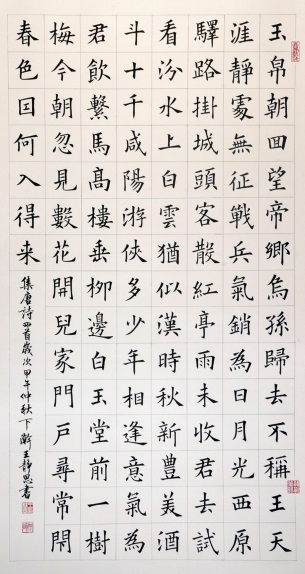 玉帛朝囬望帝鄉烏孫歸去不稱王天
涯靜處無征戰兵氣銷為日月光西原
驛路掛城頭客散紅亭雨未收君去試
看汾水上白雲猶似漢時秋新豐美酒
斗十千咸陽游俠多少年相逢意氣為
君飲繫馬高樓垂柳邊白玉堂前一樹
梅今朝忽見數花開兒家門戶尋常閇
春色囙何入得来
集唐詩四首歲次甲午仲秋下澣王靜思書